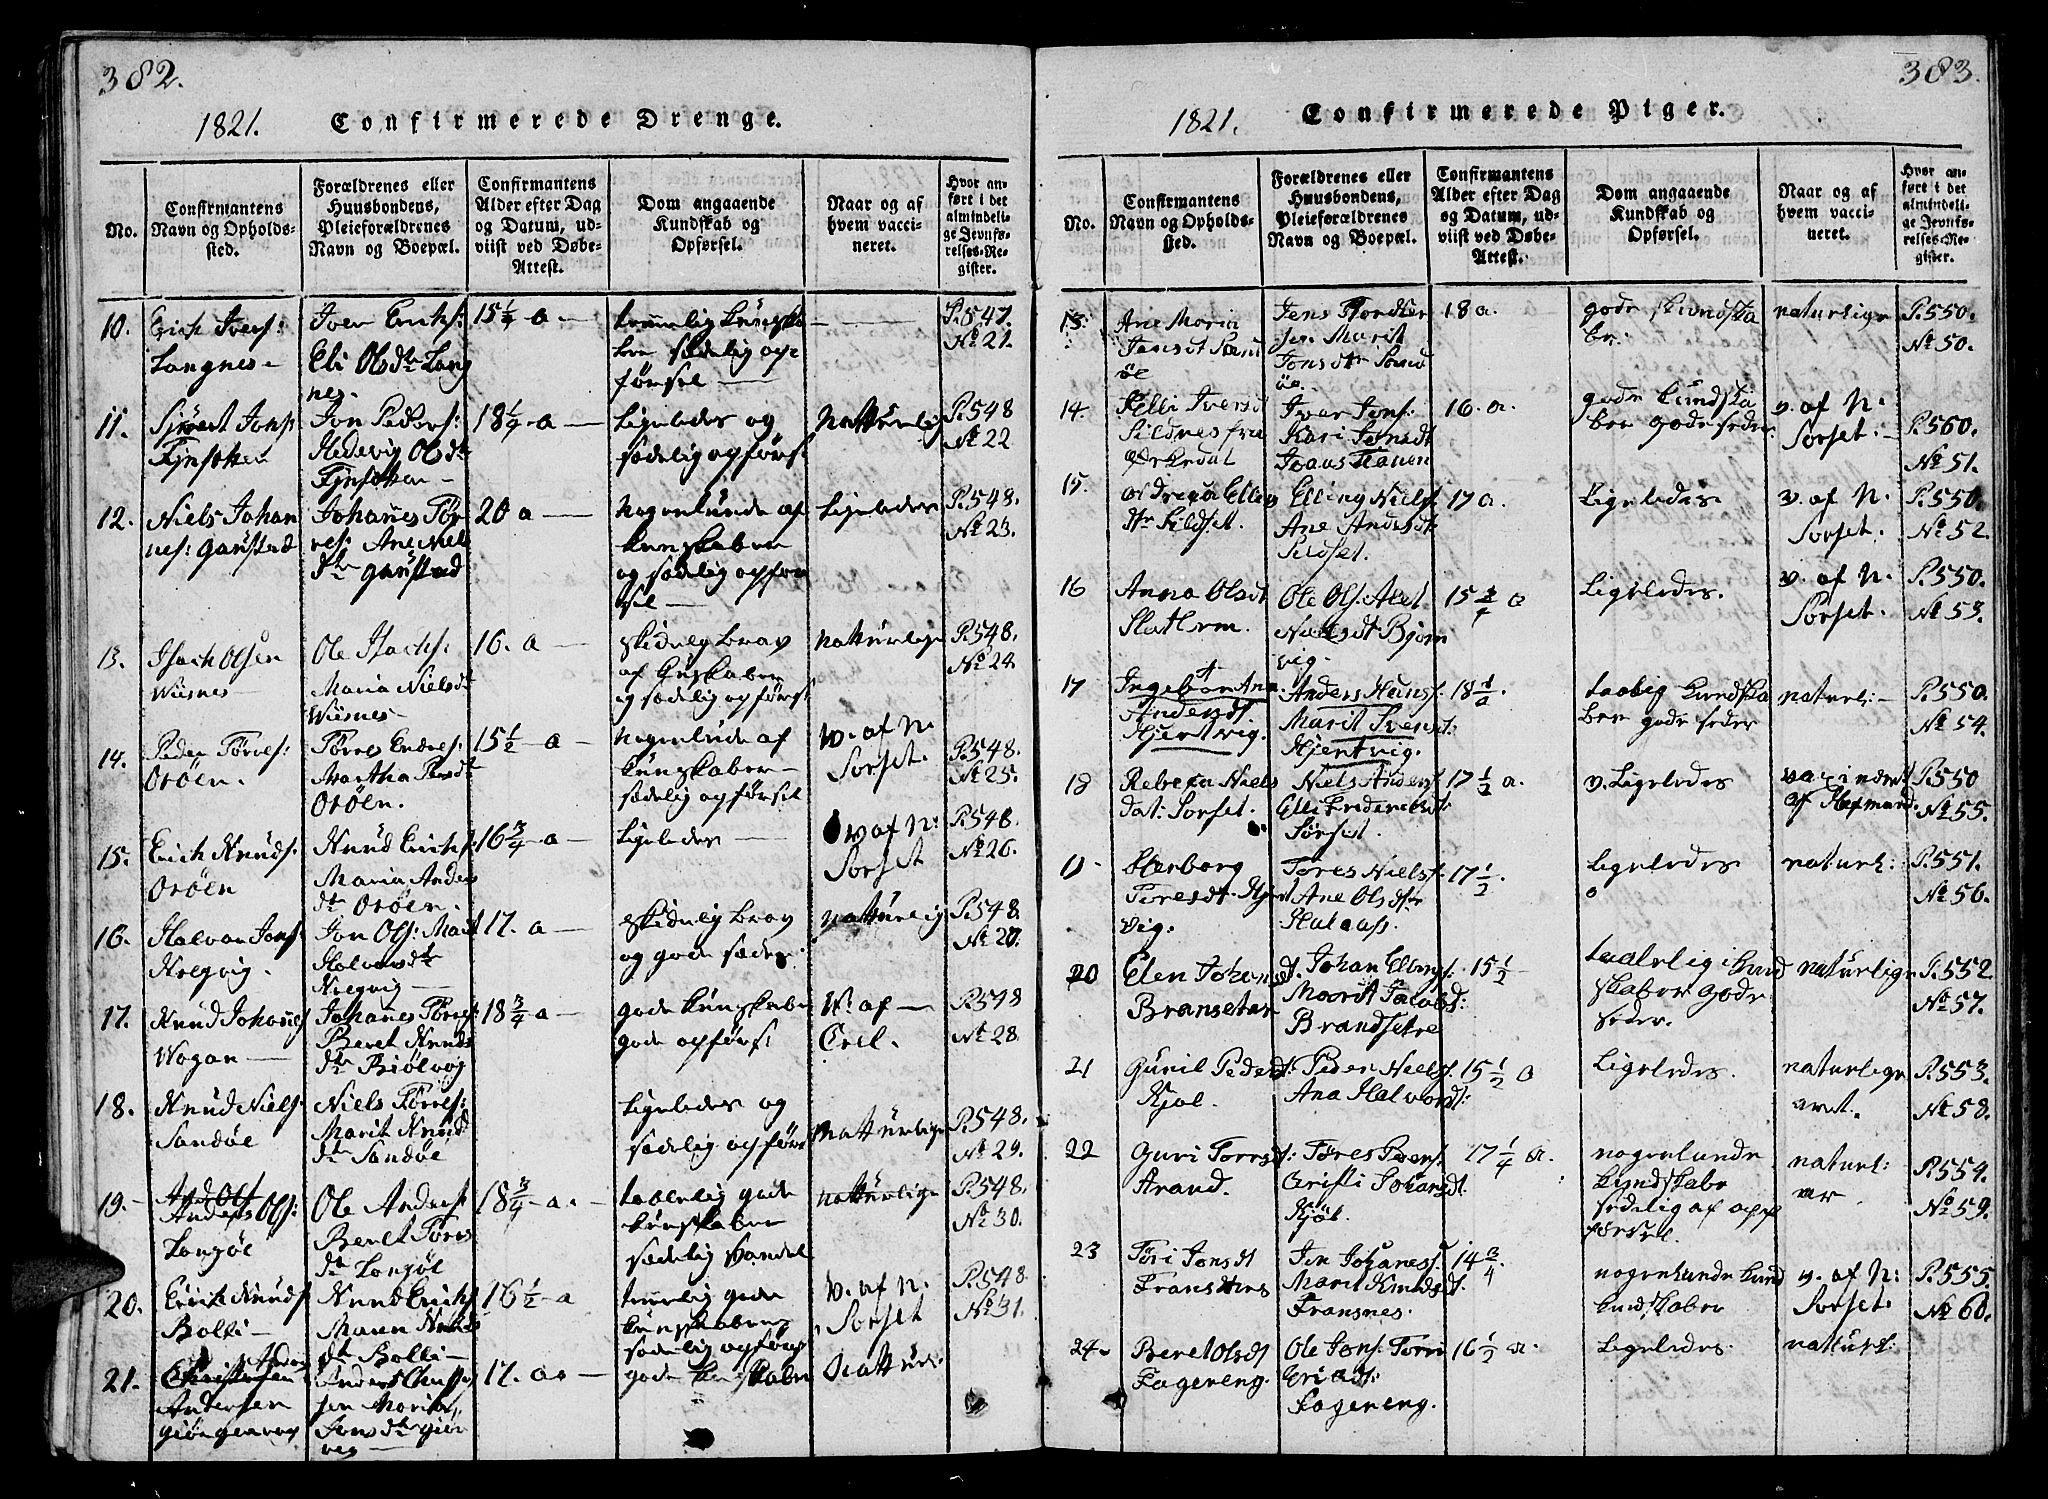 382.
1821. Confirmerede Drenge.
No.
Confirmantens
Navn og Opholds-
sted.
Forældrenes eller
Huusbondens,
Pleieforældrenes
Navn og Boepæl.
Confirmantens
Alder efter Dag
og Datum, ud-
viist ved Døbe-
Attest.
Dom angaaende
Kundskab og
Opførsel.
Naar og af
hvem vacci-
neret.
Hvor an-
ført i det
almindeli-
ge Jevnfø-
relses-Re-
gister.
10. Erich Ivers:
Langnes-
Iver Erichs:
Eli Olsdtr Lang
nes.
15 1/4 a -
temelig kungska
ber sædelig op-
førsel -
P.547.
No 21.
11. Sjuert Jons:
Jon Peders:
Hedevig Olsdtr
18 1/4 - a -
Ligeledes og
sædelig opførs:
Natturlig
P.548
No 22
12. Niels Johan
nes: Garstad
Johanes Tør
res: Ane Niels
dtr Garstad
20 a -
nogenlunde af
kungskaber
og sædelig opfør
sel -
Ligeledes
P.548.
No 23.
13. Isach Olsen
Wiisnes
Ole Isachs:
Maria Nielsdtr
Wiisnes
16. a -
skikelig brav
af kuskaber
og sædelig opførs:
natturlige
P.548.
No 24.
14. Peder Tørres:
Orøen.
Tørres Endres:
Martha Persdtr
Orøen.
15 1/2 - a -
nogenlunde af
kungskaber -
sædelig opførsel
W. af N.
Sorset.
P.548.
No 25.
15. Erich Knuds:
Orøen
Knud Erichs:
Maria Anders
dtr Orøen.
16 3/4 - a -
Ligeledes -
W af N:
Sorset
P.548.
No 26.
16. Halvor Jons:
Jon Ols: Marit
Halvorsdtr
17. a -
skikelig brav
og gode sæder
natturlig
P.548.
No 27.
17. Knud Johanes
Wogan -
Johanes Tørres:
Beret Knuds
dtr
18 3/4 - a -
gode kungskaber
gode opførs:
W: af -
P.548
No 28.
18. Knud Niels:
Sandøe
Niels Tørres:
Marit Knud
dtr Sandøe
Ligeledes og
sædelig opførs
natturlige
P.548.
No 29.
19. Anders Ols:
Langøe
Ole Anders:
Beret Tørres
dtr Langøe
18 3/4 - a. -
taalelig gode
kungskaber
sædelig vandel
natturlige
P.548.
No 30.
20. Erich Knuds
Bolli -
Knud Erichs:
Maren Knuds
dtr Bolli -
16 1/2 - a
temelig gode
kungskaber
sædelig opførs:
W. af N.
Sorset
P.548.
No 31.
21. Christensen
Andersen
17. a. -
gode kungskaber
Nattur:
383.
1821. Confirmerede Piger.
No.
Confirmantens
Navn og Opholds-
sted.
Forældrenes eller
Huusbondens,
Pleieforældrenes
Navn og Boepæl.
Confirmantens
Alder efter Dag
og Datum, ud-
viist ved Døbe-
Attest.
Dom angaaende
Kundskab og
Opførsel.
Naar og af
hvem vacci-
neret.
Hvor an-
ført i det
almindeli-
ge Jevnfø-
relses-Re-
gister.
13: Ane Maria
Jensdt Sand
øe
Marit
Jonsdtr Sand
øe.
18 a.
gode kundska
ber.
naturlige
P.550.
No 50.
14. Iversdt
Sildnes fra
Ørkedal
Iver Jens:
Kari Jensdt
16. a.
gode kundska
ber gode seder
v. af N:
Sorset:
P.560.
No 51.
15. Ellens
dtr Sildset.
Elling Niels:
Ane Andersdt:
Sildset.
17 a.
Ligeledes
v. af N.
Sorset.
P.550.
No 52.
16 Anna Olsdt
Slatlem.
Ole Ols:
Nielsdt Bjørn
vig.
15 3/4 a
Ligeledes.
v. af N.
Sorset.
P.550.
No 53.
17 Ingebor Ana
Andersdt.
Hjertvig.
Anders Hans:
Marit Svensdt:
Hjertvig.
18
kundska
ber gode seder
naturl: -
P.550.
No 54.
18 Rebecca Niels
dat: Sorset.
Niels Anders:
Elli Frederichsdt:
Sørset.
17 1/2 a.
v. Ligeledes
vaxineret
af
P.550
No 55.
19 - Sterborg
Toresdt. Hjert
vig.
Tores Niels:
Ane Olsdtr
17 1/2.
Ligeledes
naturl:
P.551.
No 56.
20 Elen Johansdt.
Bransetær
Johan Ellings:
Marit Jacobsd:
Brandsetre
15 1/2
taalelig i kund
skaber gode
seder.
naturlige
P.552
No 57.
21 Guril Pedersdt:
Kjøl.
Peder Niels:
Ana Halvordt:
15 1/2 a
Ligeledes.
naturlige
aret.
P.553.
No 58.
22 Guri Torresdt:
Arand.
Tøres Peders:
Cristi Johansdt.
Kjöl.
17 1/4 a.
nogenlunde
kundskabe
sedelig af opf
førsel.
naturl:
ar
P.554.
No 59.
23 Tøri Jonsdt
Fransdtnes
Jon Johanes:
Marit Knudsdt.
Fransnes.
14 3/4.
nogenlunde kund
kundskaber
v. af N:
Sorset:
P.555.
No 60.
24. Beret Olsdt
Fagereng.
Ole Jons:
Fagereng.
16 1/2 a.
Ligeledes.
naturl: